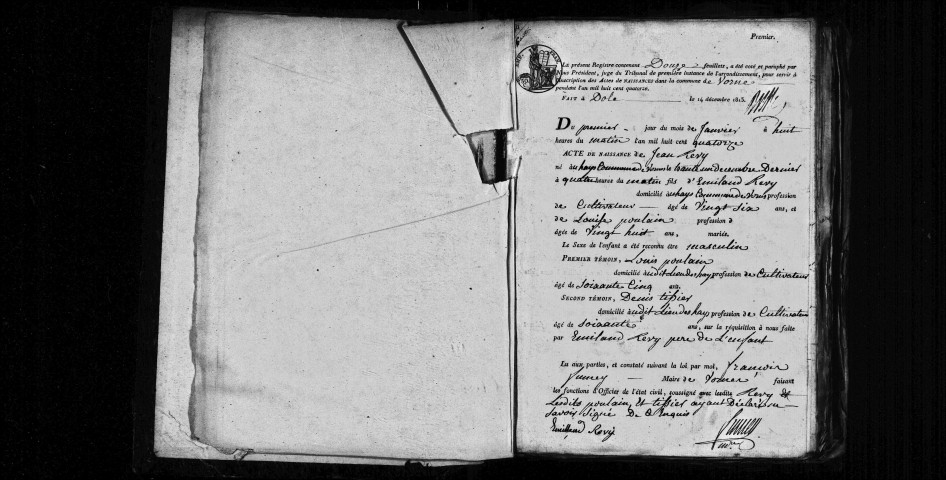 Premier.
Le présent Registre contenant Douze feuillets, a été coté et paraphé par
Nous Président, juge du Tribunal de première instance de l'arrondissement, pour servir à
l'inscription des Actes de NAISSANCES dans la commune de Vorne
pendant l'an mil huit cent quatorze.
FAIT à Dole le 14 décembre 1813.
DU premier jour du mois de Janvier à huit
heures du matin l'an mil huit cent quatorze
ACTE DE NAISSANCE de Jean Revy
né à hays Commune de le trente un Decembre Dernier
à quatre heures du matin fils d'Emiland Revy
domicilié à hays Commune de profession
de Cultivateur âgé de Vingt Six ans, et
de Louise poulain profession d
âgée de Vingt huit ans, mariés.
Le Sexe de l'enfant a été reconnu être masculin
PREMIER TÉMOIN, Louis poulain
domicilié audit Lieu des hays profession de Cultivateur
âgé de Soixante Cinq ans.
SECOND TÉMOIN, Denis tissier
domicilié audit Lieu des hays profession de Cultivateur
âgé de Soixante ans, sur la réquisition à nous faite
par Emiland Revy pere de L'enfant
Lu aux parties, et constaté suivant la loi par moi, francois
Maire de Vorne faisant
les fonctions d'Officier de l'état civil, soussigné avec lesdits Revy
Lesdits poulain, et tissier ayant Déclaré ne
Savoir Signé De Enquis
Emilland Revy